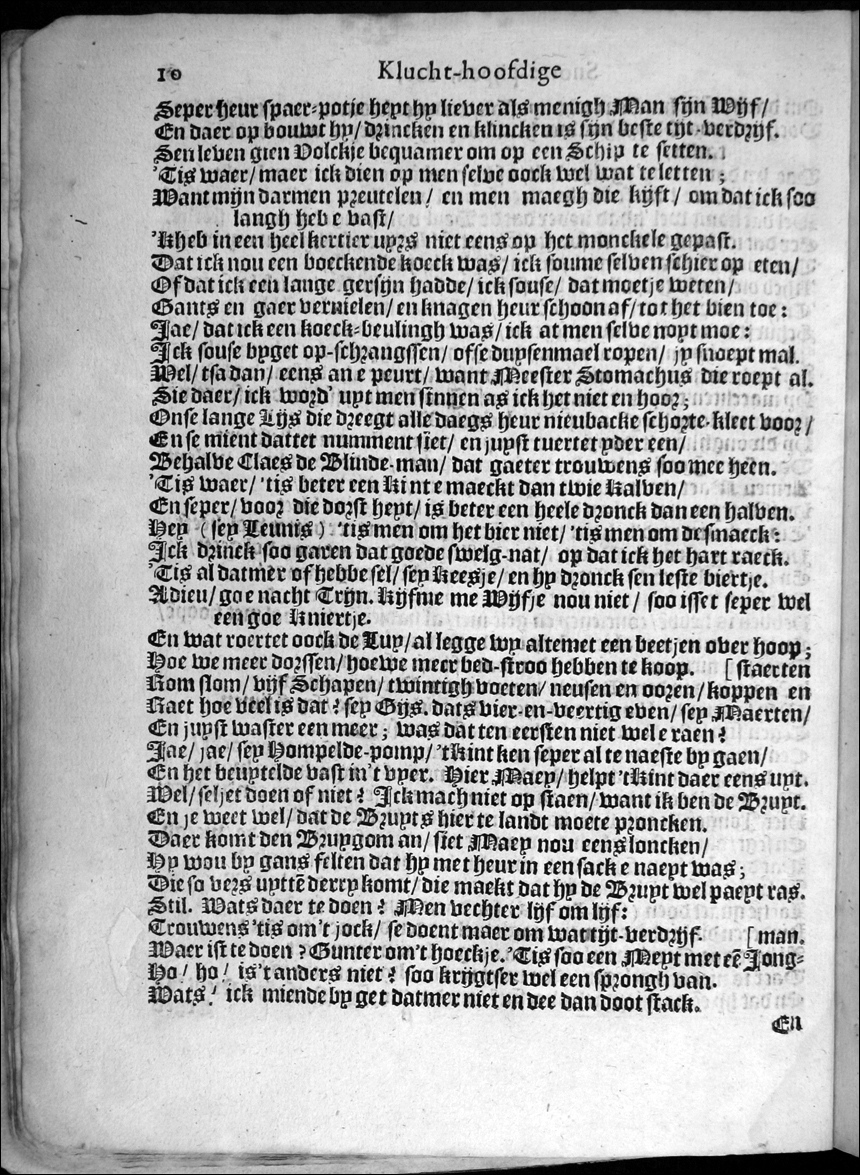 10 Klucht-hoofdige
Seper heur spaer-potje heyt hy liever als menigh Man sijn Wijf/
En daer op bouwt hy/ drincken en klincken is sijn beste tijt-verdrijf.
Sen leven gien Volckje bequamer om op een Schip te setten.
'Tis waer/ maer ick dien op men selve oock wel wat te letten;
Want mijn darmen preutelen/ en men maegh die kijft/ om dat ick soo
langh heb e vast/
'Kheb in een heel kertier uyrs niet eens op het monckele gepast.
Dat ick nou een boeckende koeck was/ ick soume selven schier op eten/
Of dat ick een lange gersijn hadde/ ick souse/ dat moet je weten/
Gants en gaer vernielen/ en knagen heur schoon af/ tot het bien toe:
Jae/ dat ick een koeck-beulingh was/ ick at men selve noyt moe:
Ick souse byget op-schrangssen/ ofse duysenmael ropen/ jy snoept mal.
Wel/ tsa dan/ eens an e peurt/ want Meester Stomachus die roept al.
Sie daer/ ick word' uyt men sinnen as ick het niet en hoor;
Onse lange Lijs die dreegt alle daegs heur nieubacke schorte-kleet voor/
En se mient dattet numment siet/ en juyst tuertet yder een/
Behalve Claes de Blinde-man/ dat gaeter trouwens soo mee heen.
'Tis waer/ 'tis beter een Kint e maeckt dan twie Kalven/
En seper/ voor die dorst heyt/ is beter een heele dronck dan een halven.
Hey (sey Teunis) 'tis men om het bier niet/ 'tis men om de smaeck:
Ick drinck soo garen dat goede swelg-nat/ op dat ick het hart raeck.
'Tis al datmer of hebbe sel/ sey Keesje/ en hy dronck sen leste biertje.
Adieu/ goe nacht Trijn. Kijfme me Wijfje nou niet/ soo isset seper wel
een goe Kniertje.
En wat roertet oock de Luy/ al legge wy altemet een beetjen over hoop;
Hoe we meer dorssen/ hoewe meer bed-stroo hebben te koop. [staerten
Kom slom/ vijf Schapen/ twintigh voeten/ neusen en ooren/ koppen en
Raet hoe veel is dat? sey Gijs. dats vier-en-veertig even/ sey Maerten/
En juyst waster een meer; was dat ten eersten niet wel e raen?
Jae/ jae/ sey Hompelde-pomp/ 'tKint ken seper al te naeste by gaen/
En het beuytelde vast in't vyer. Hier Maey/ helpt 'tKint daer eens uyt.
Wel/ seljet doen of niet? Ick mach niet op staen/ want ik ben de Bruyt.
En je weet wel/ dat de Bruyts hier te landt moete proncken.
Daer komt den Bruygom an/ siet Maey nou eens loncken/
Hy wou by gans felten dat hy met heur in een sack e naeyt was;
Die so vers uyttē derry komt/ die maekt dat hy de Bruyt wel paeyt ras.
Stil. Wats daer te doen? Men vechter lijf om lijf:
Trouwens 'tis om't jock/ se doent maer om wat tijt-verdrijf. [man.
Waer ist te doen? Gunter om't hoeckje. 'Tis soo een Meyt met eē Jong-
Ho/ ho/ is't anders niet? soo krijgtser wel een sprongh van.
Wats! ick miende by get datmer niet en dee dan doot stack.
En